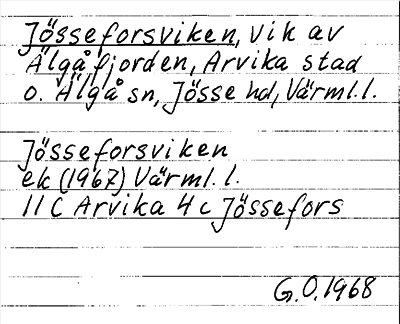 Jösseforsviken, vik av
Älgåfjorden, Arvika stad
o. Älgå sn, Jösse hd, Värml.l.
Jösseforsviken
ek (1967) Värml. l.
11 C Arvika 4 c Jössefors
G.O. 1968